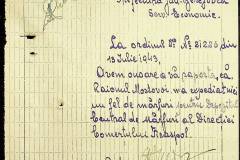 Prefectura Jud. Berezovca
Serv. Economic.
La ordinul Dv. No 21286 din
13 Iulie 1943,
Avem onoare a vă raporta, că
Raionul Mostovoi n'a expediat nici
un fel de mărfuri pentru Depozitul
Central de Mărfuri al Direcției
Comerțului Tiraspol